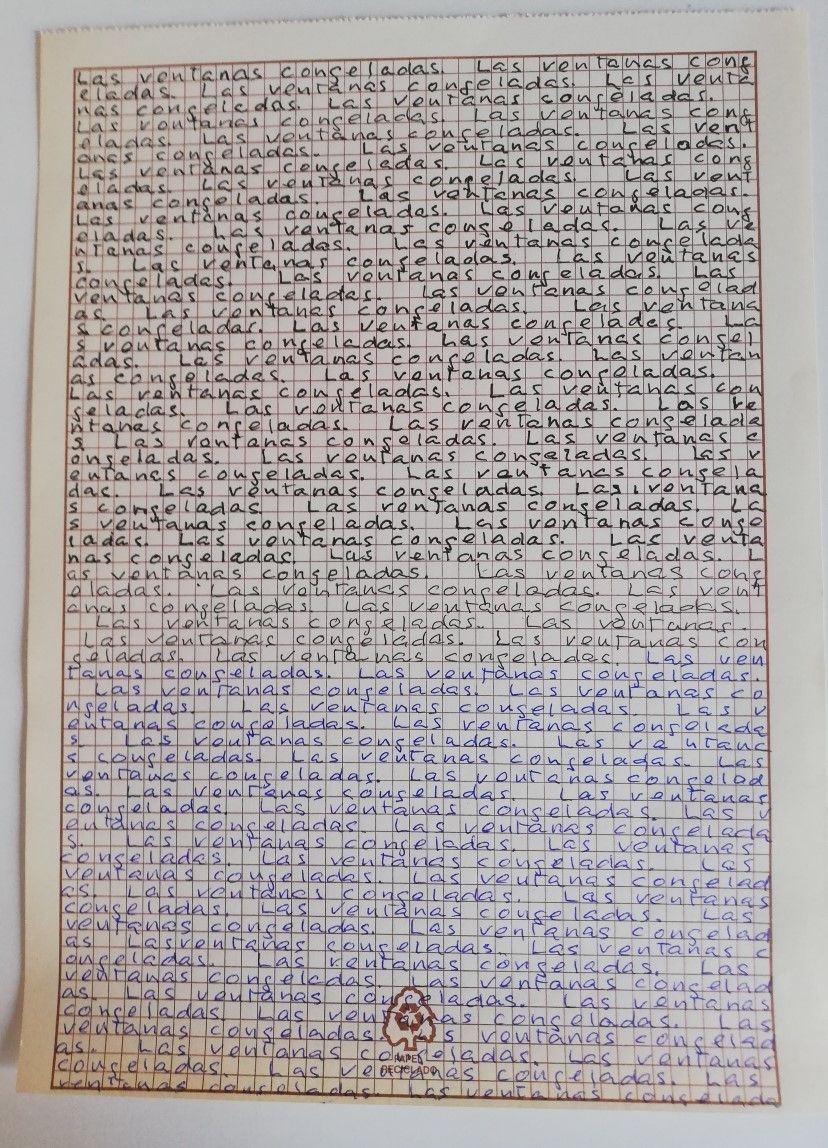 Las ventanas congeladas. Las ventanas cong
eladas. Las ventanas congeladas. Las venta
nas congeladas. Las ventanas congeladas.
Las ventanas congeladas. Las ventanas cong
eladas. Las ventanas congeladas. Las vent
anas congeladas. Las ventanas congeladas.
Las ventanas congeladas. Las ventanas cong
eladas. Las ventanas congeladas. Las vent
anas congeladas. Las ventanas congeladas.
Las ventanas congeladas. Las ventanas cong
eladas. Las ventanas congeladas. Las ve
ntanas congeladas. Las ventanas congelada
s. Las ventanas congeladas. Las ventanas
congeladas. Las ventanas congeladas. Las
ventanas congeladas. Las ventanas congelad
as. Las ventanas congeladas. Las ventana
s congeladas. Las ventanas congeladas. La
s ventanas congeladas. Las ventanas congel
adas. Las ventanas congeladas. Las ventan
as congeladas. Las ventanas congeladas.
Las ventanas congeladas. Las ventanas con
geladas. Las ventanas congeladas. Las ve
ntanas congeladas. Las ventanas congelada
s. Las ventanas congeladas. Las ventanas c
ongeladas. Las ventanas congeladas. Las v
entanas congeladas. Las ventanas congela
das. Las ventanas congeladas. Las ventana
s congeladas. Las ventanas congeladas. La
s ventanas congeladas. Las ventanas conge
ladas. Las ventanas congeladas. Las venta
nas congeladas. Las ventanas congeladas. L
as ventanas congeladas. Las ventanas cong
eladas. Las ventanas congeladas. Las vent
anas congeladas. Las ventanas congeladas.
Las ventanas congeladas. Las ventanas.
Las ventanas congeladas. Las ventanas con
geladas. Las ventanas congeladas. Las ven
tanas congeladas. Las ventanas congeladas.
Las ventanas congeladas. Las ventanas co
ngeladas. Las ventanas congeladas. Las v
entanas congeladas. Las ventanas congelada
s. Las ventanas congeladas. Las ventana
s congeladas. Las ventanas congeladas. Las
ventanas congeladas. Las ventanas congelad
as. Las ventanas congeladas. Las ventanas
congeladas. Las ventanas congeladas. Las v
entanas congeladas. Las ventanas congelada
s. Las ventanas congeladas. Las ventanas
congeladas. Las ventanas congeladas. Las
ventanas congeladas. Las ventanas congelad
as. Las ventanas congeladas. Las ventanas
congeladas. Las ventanas congeladas. Las
ventanas congeladas. Las ventanas congelad
as Las ventanas congeladas. Las ventanas c
ongeladas. Las ventanas congeladas. Las
ventanas congeladas. Las ventanas congelad
as. Las ventanas congeladas. Las ventanas
congeladas. Las ventanas congeladas. Las
ventanas congeladas. Las ventanas congelad
as. Las ventanas congeladas. Las ventanas
congeladas. Las ventanas congeladas. Las
ventanas congeladas. Las ventanas congelada
PAPEL
RECICLADO